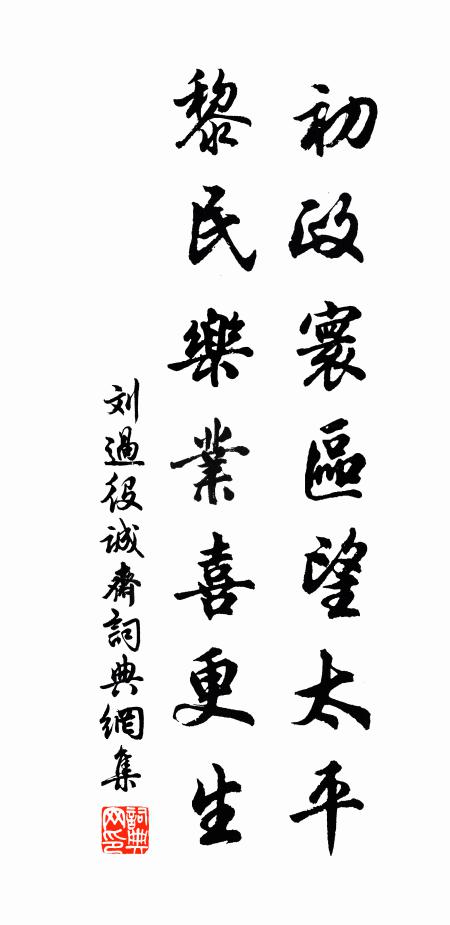 初政寰區望太平
黎民樂業喜更生
刘過役誠齋詞典網集
詞典網印